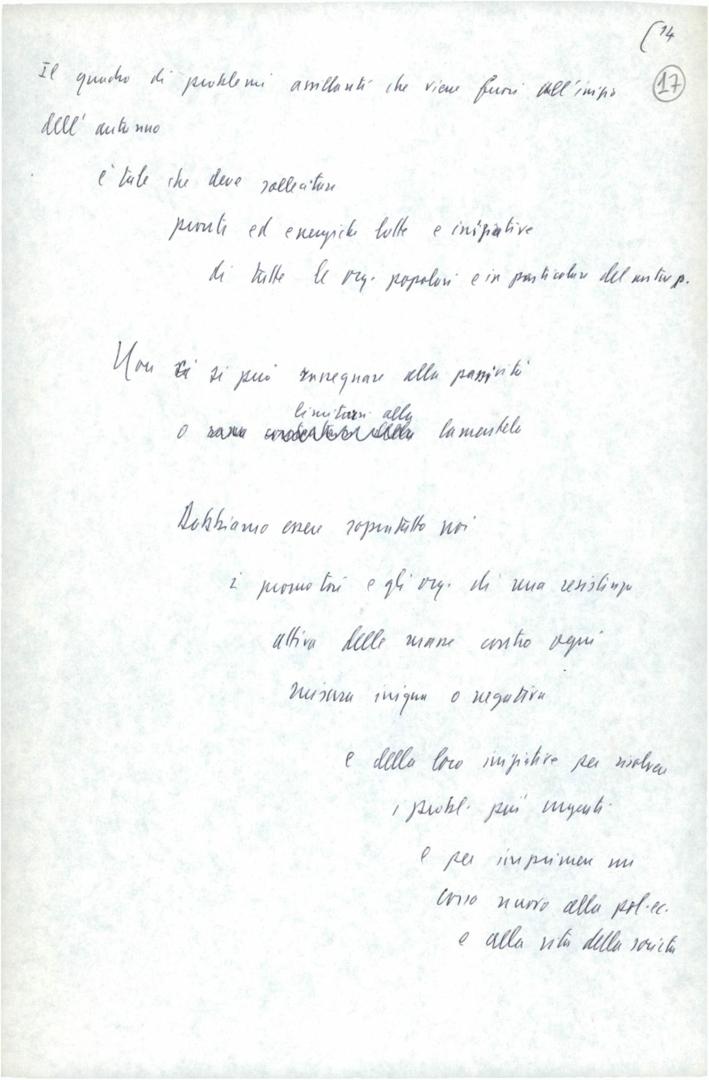 14
17
Il quadro di problemi assillanti che viene fuori all'inizio
dell'autunno
è tale che deve sollecitare
pronte ed energiche lotte e iniziative
di tutte le org. popolari e in particolare del nostro p.
Non si può rassegnare alla passività
limitarsi alla
o lamentela
Dobbiamo essere soprattutto noi
i promotori e gli org. di una resistenza
attiva delle masse contro ogni
misura iniqua o negativa
e della loro iniziativa per risolvere
i probl. più urgenti
e per imprimere un
corso nuovo alla pol. ec.
e alla vita della società